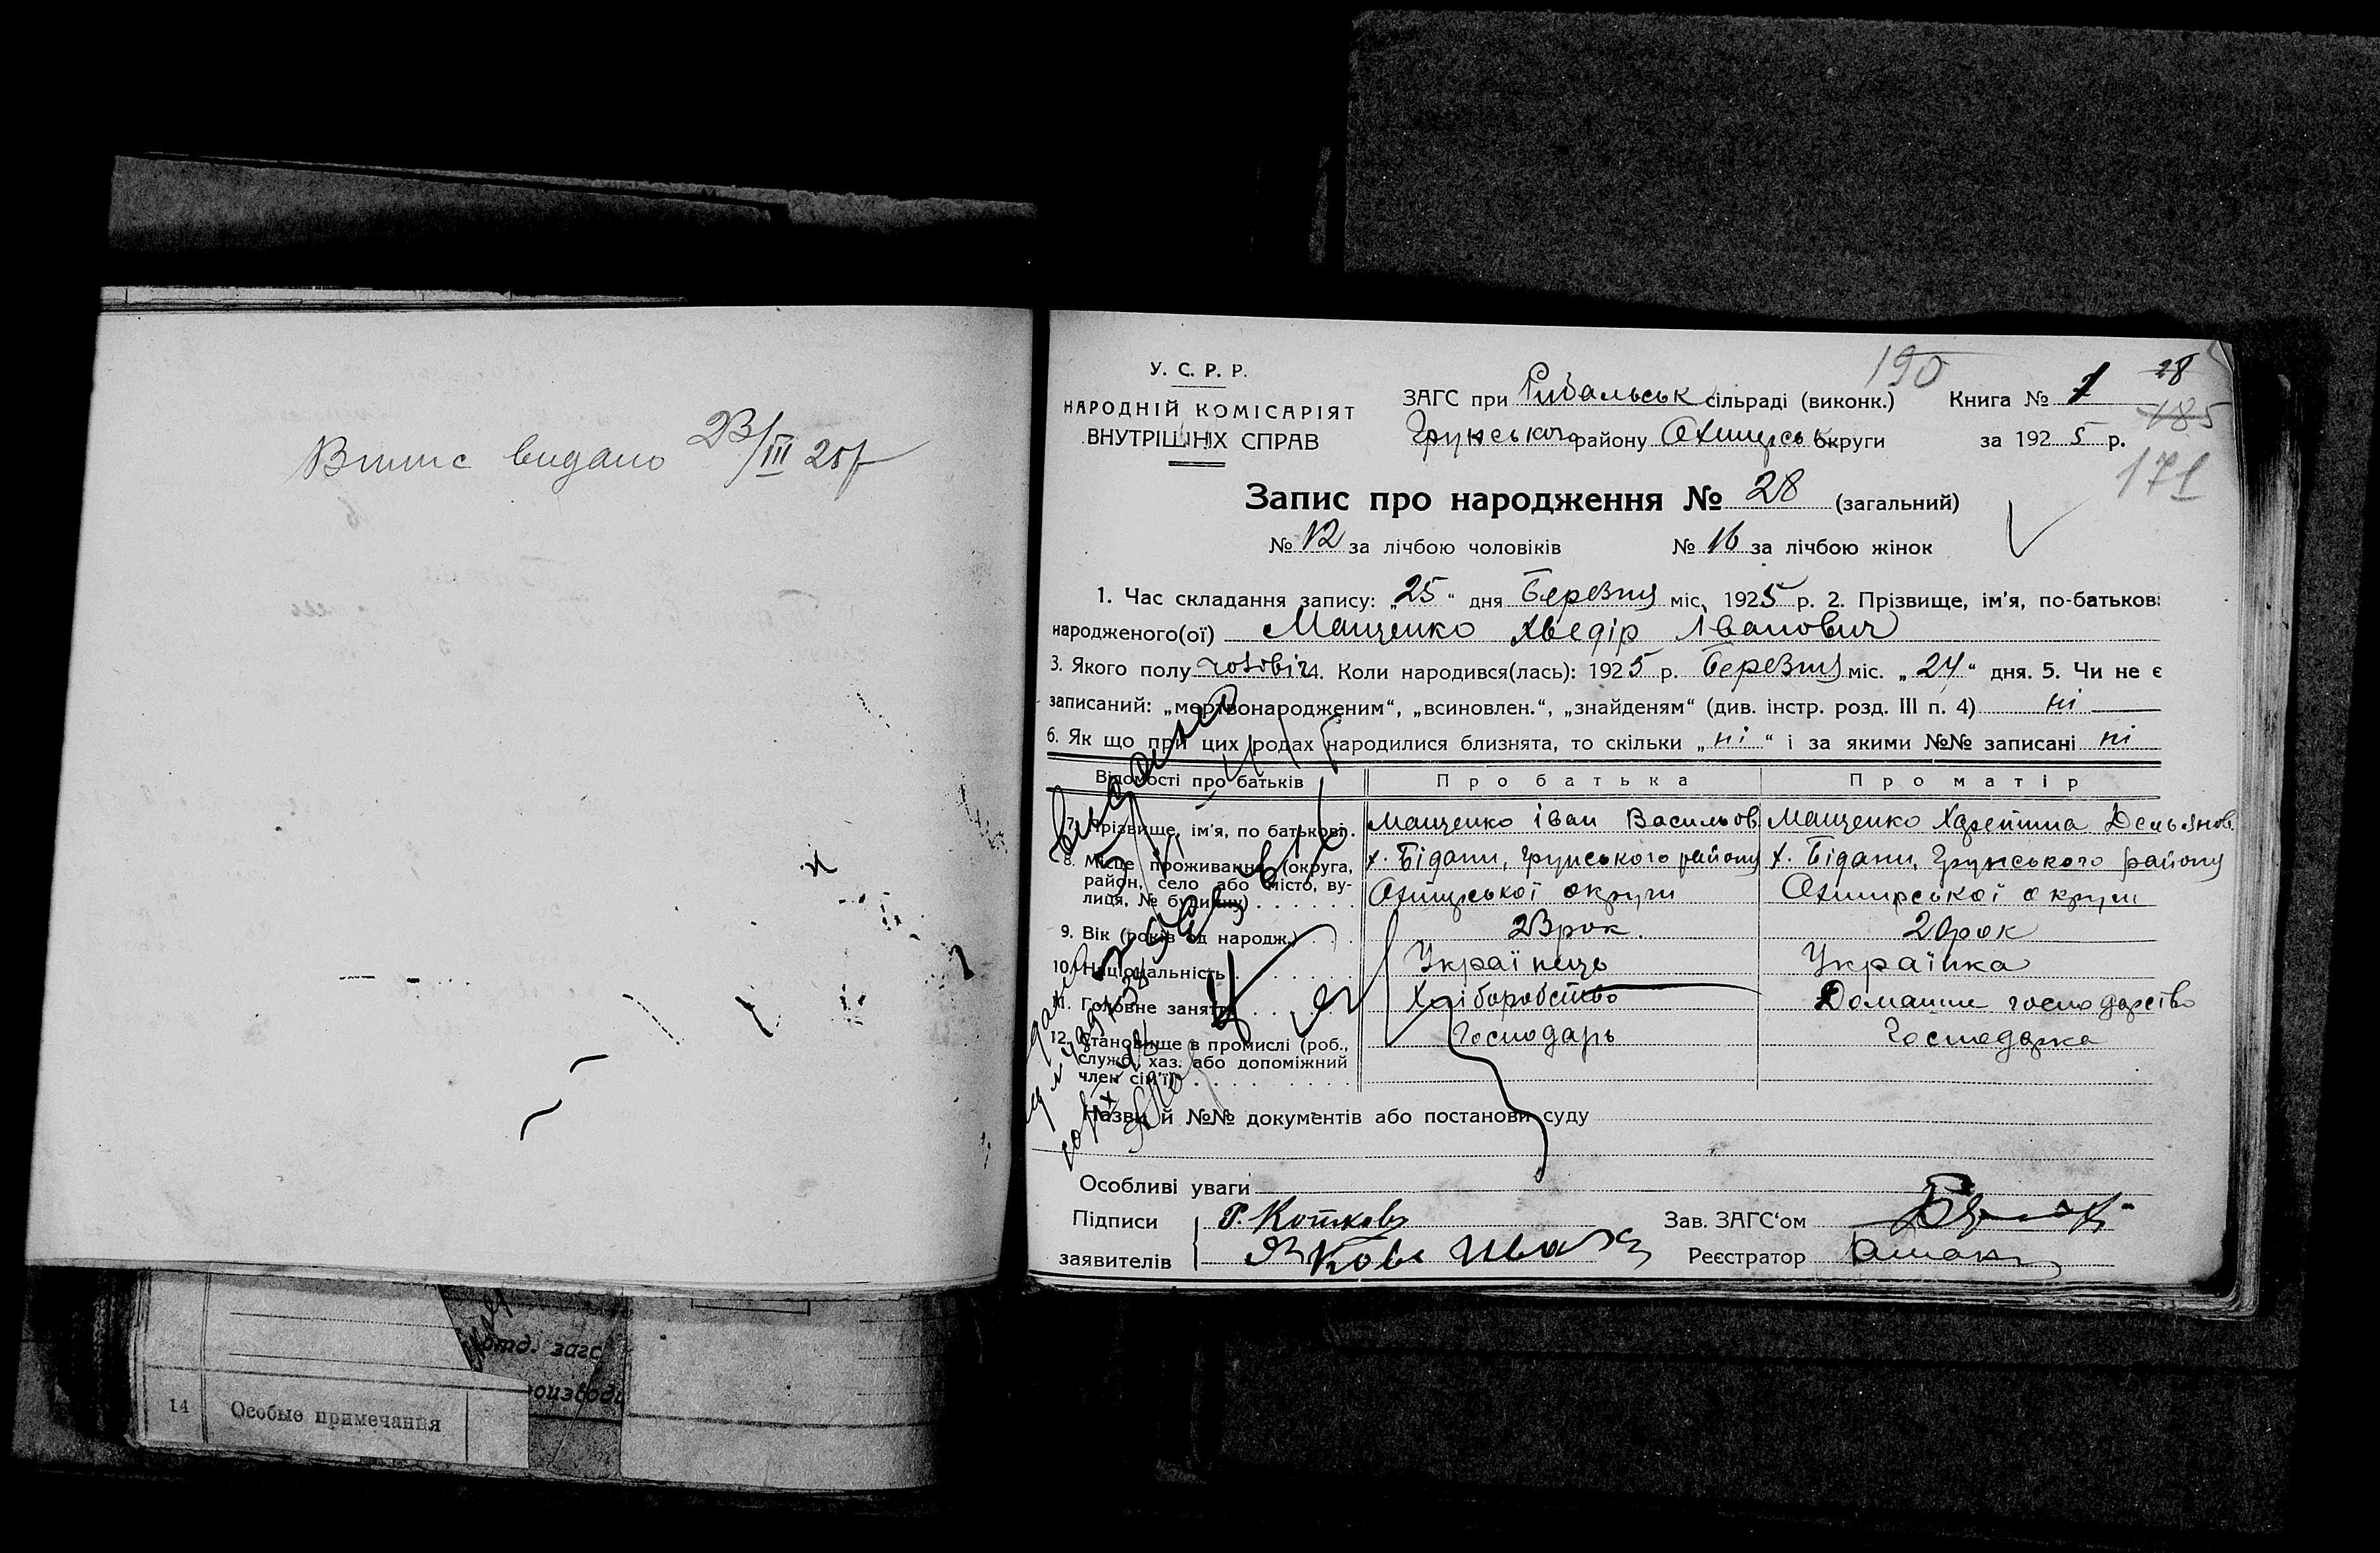 Випис видано 23/III 25 р
отд. загс
14 Особые примечания
190
28
185
171
У. С. Р. Р.
НАРОДНІЙ КОМІСАРІЯТ
ВНУТРІШНІХ СПРАВ
ЗАГС при Рибальськ сільраді (виконк.) Книга № 1
Грунського району Охтирськ округи за 1925 р.
Запис про народження № 28 (загальний)
№ 12 за лічбою чоловіків № 16 за лічбою жінок
1. Час складання запису: „25“ дня Березня міс. 1925 р. 2. Прізвище, ім'я, по-батькові
народженого(ої) Мащенко Хведір Іванович
3. Якого полу чоловіч 4. Коли народився(лась): 1925 р. Березня міс. „24“ дня. 5. Чи не є
записаний: „мертвонародженим“, „всиновлен.“, „знайденям“ (див. інстр. розд. III п. 4) ні
6. Як що при цих родах народилися близнята, то скільки „ні“ і за якими №№ записані ні
Відомості про батьків Про батька Про матір
7. Прізвище, ім'я, по батькові. Мащенко Іван Васильов Мащенко Демьянов.
8. Місце проживання (округа, х. Бідани, Грунського району х. Бідани, Грунського району
район, село або місто, ву-
лиця, № будинку) Охтирської округи Охтирської округи
9. Вік (років од народж.) 23 рок. 20 рок
10. Національність Українець Українка
11. Головне заняття Хліборобство Домашнє господарство
12. Становище в промислі (роб., Господарь Господарка
служб., хаз. або допоміжний
член сім'ї)
Назви й №№ документів або постанови суду
Особливі уваги
Підписи Зав. ЗАГС'ом
заявителів Реєстратор
видано